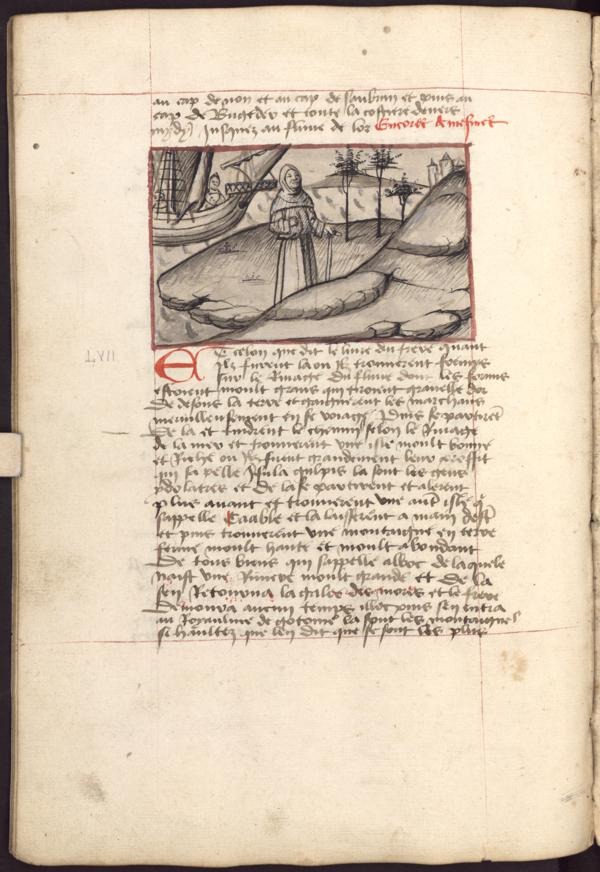 au cap de non et au cap de saubrun et puis au
cap de Bugeder et toute la costiere devers
midy Jusques au flume de lor Encores de mesmes
Et celon que dit le livre du frere quant
ilz furent la ou ilz trouverent formis
sur le Rivage du flume dont les formis
estoient moult grans qui tiroient gravelle dor
de desoubs la terre et gaignerent les marchans
merveilleusement en se voiage Puis se partirent
De la et tindrent le chemin selon le Rivage
de la mer et trouverent une isle moult bonne
et Riche ou ilz firent grandement leur proffit
qui sapelle Insula gulpis la sont les gens
ydolatres et De la se partirent et alerent
plus avant et trouverent une autre isle qui
sappelle Caable et la laisserent a main destre
et puis trouverent une montaigne en terre
ferme moult haute et moult abondant
De tous biens qui sappelle alboc de laquele
naist une Riviere moult grande et De la
sen Retourna la galee des mores et le frere
Demoura aucun temps illec puis sen entra
au Royaulme de gotome la sont les montaignes
si haultes que len dit que se sont les plus